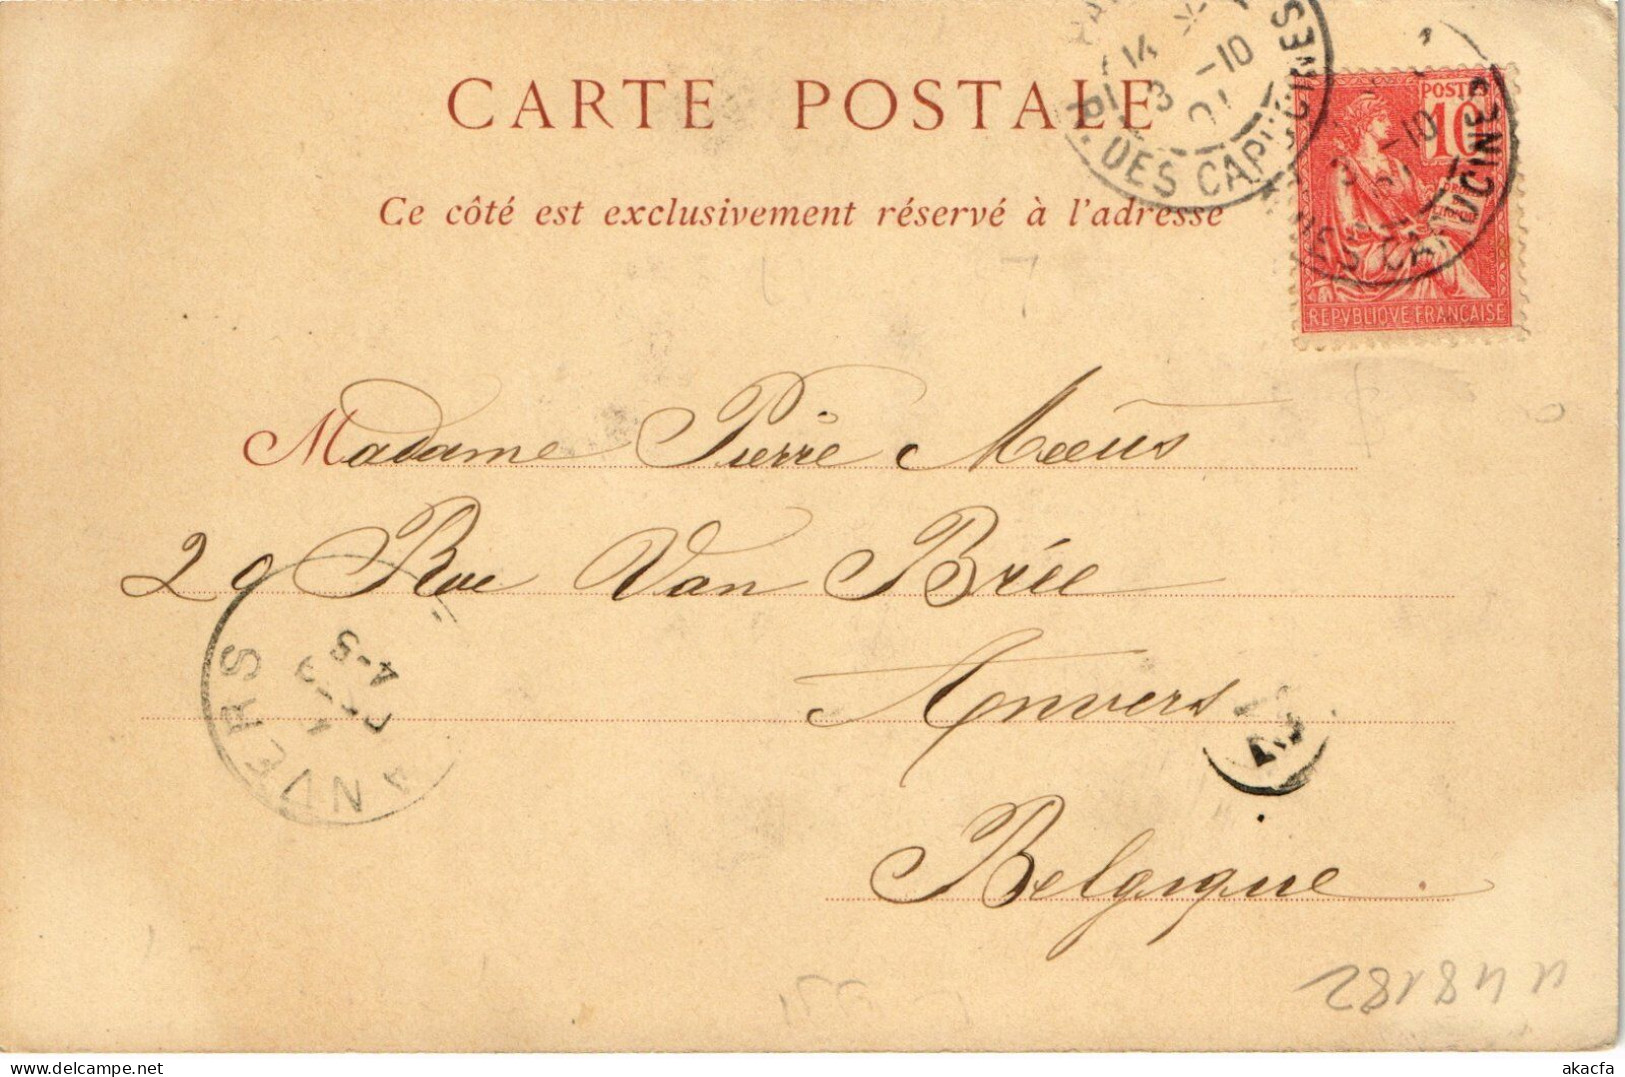 CARTE POSTALE
Ce côté est exclusivement réservé à l'adresse
R. DES CAPUCINES
14
3 -10
01
POSTE
10
-10
CAPUCINES
REPVBLIQVE FRANÇAISE
Madame Pierre Meeùs
29 Rue Van Brée
Anvers
Belgique.
ANVERS
4-5
akacfa